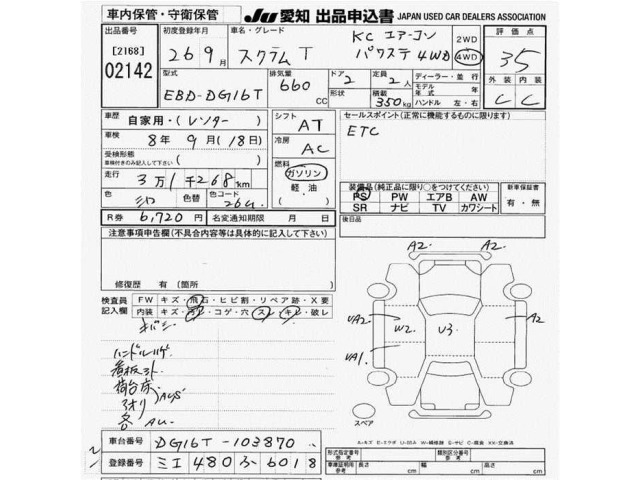 車内保管・守衛保管
JU 愛知 出品申込書 JAPAN USED CAR DEALERS ASSOCIATION
出品番号
[2168]
02142
初度登録年月
26年 9月
車名・グレード
スクラムT
KC エアーコン
パワステ 4WD
2WD
4WD
評価点
3.5
型式
EBD-DG16T
排気量
660 cc
ドア
2
形状
定員
2人
積載
350kg
ディーラー・並行
モデル年式 年
ハンドル 左・右
外装 内装
C C
車歴
自家用・(レンター)
車検
8年 9月(18日)
受検形態
車検付きのみ記入して下さい
走行
3万1千268km
色
シロ
色替
色コード
26U
R券
6,720円
名変通知期限 月 日
シフト
AT
冷房
AC
燃料
ガソリン
軽・油
セールスポイント(正常に機能するものに限ります)
ETC
装備品(純正品に限り○をつけてください)
PS PW エアB AW
SR ナビ TV カワシート
新車保証書
有・無
後日品
注意事項申告欄(不具合内容等は具体的に記入して下さい)
修復歴 有(箇所 )
検査員記入欄
FW キズ・飛石・ヒビ割・リペア跡・X要
内装 キズ・汚レ・コゲ・穴・スレ・キレ・破レ
ハンドルハゲ
看板ヨト
荷台床
アオリ
各 AU
A2 A2
UA2 W2 U3 A2
UA1
スペア
A-キズ E-エクボ U-凹み W-補修跡 S-サビ C-腐食 XX-交換済
車台番号
DG16T-103870
登録番号
三重 480 ふ 6018
型式指定番号
類別区分番号
車庫証明用参考
長さ cm
幅 cm
高さ cm